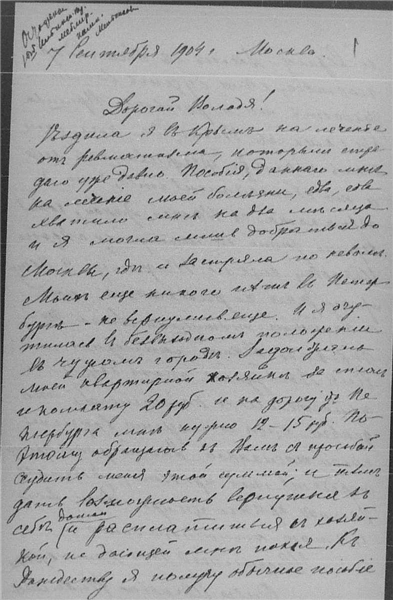 7 Сентября 1904 г. Москва.
Дорогой Володя!
Ѣздила я въ Крымъ на леченье
отъ ревматизма, которымъ стра-
даю уже давно. Пособія, даннаго мнѣ
на леченіе моей болѣзни, едва, едва
хватило мнѣ на два мѣсяца
и я могла лишь добраться до
Москвы, гдѣ и застряла по неволѣ.
Моихъ еще никого нѣтъ въ Петер-
бургѣ - не вернулись еще. И я очу-
тилась въ безвыходномъ положеніи
въ чужомъ городѣ. Задолжала
моей квартирной хозяйкѣ за столъ
и комнату 20 руб. и на дорогу до Пе-
тербурга мнѣ нужно 12-15 руб. По-
этому обращаюсь къ Вамъ съ просьбой
ссудить меня этой суммой и тѣмъ
дать возможность вернуться къ
себѣ домой и расплатиться съ хозяй-
кой, не дающей мнѣ покоя. Къ
Рождеству я получу обычное пособіе